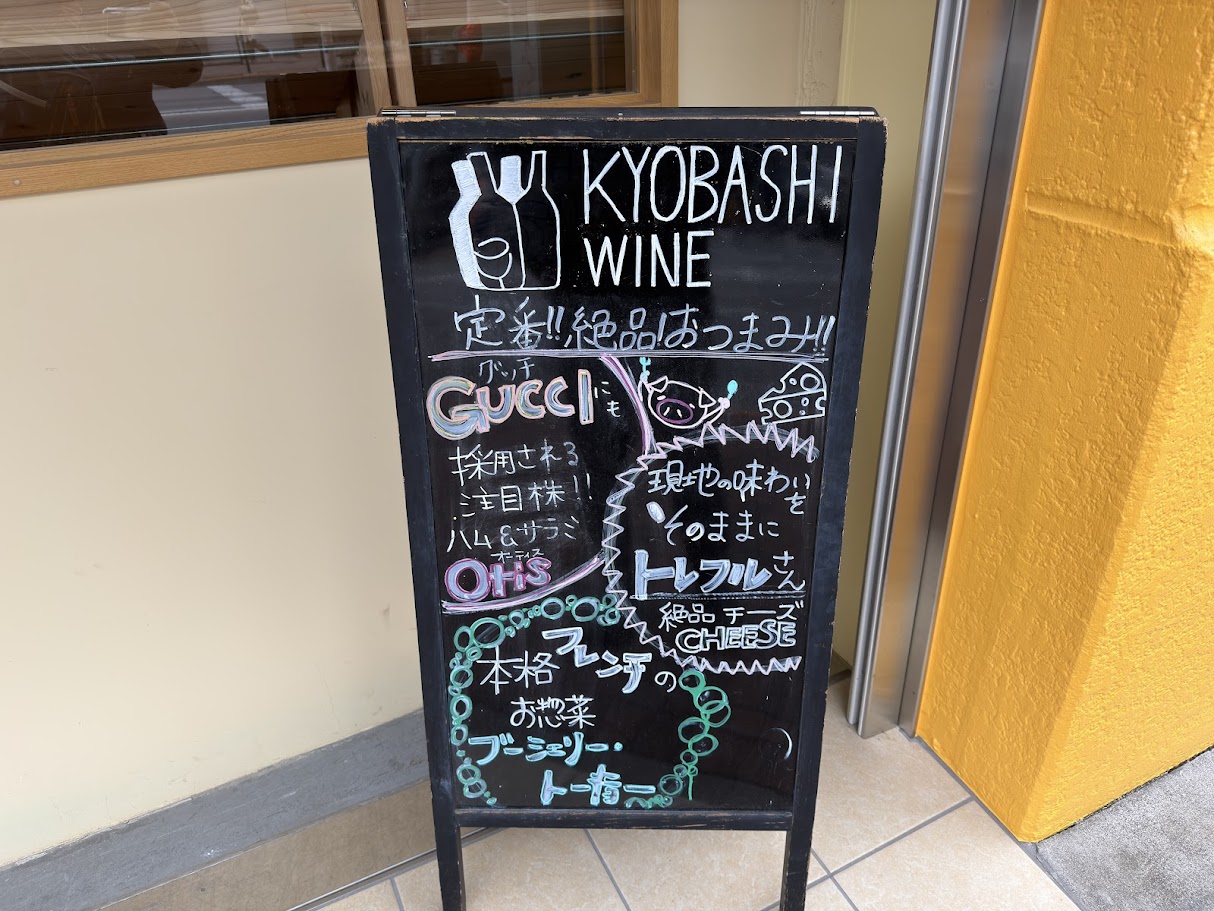 KYOBASHI
WINE
定番!!絶品!おつまみ!!
グッチ
GUCCIにも
採用される
注目株!!
ハム&サラミ
オーティス
OtiS
現地の味わいを
そのままに
トレフルさん
絶品チーズ
CHEESE
本格フレンチの
お惣菜
ブーシェリー・
トーキョー